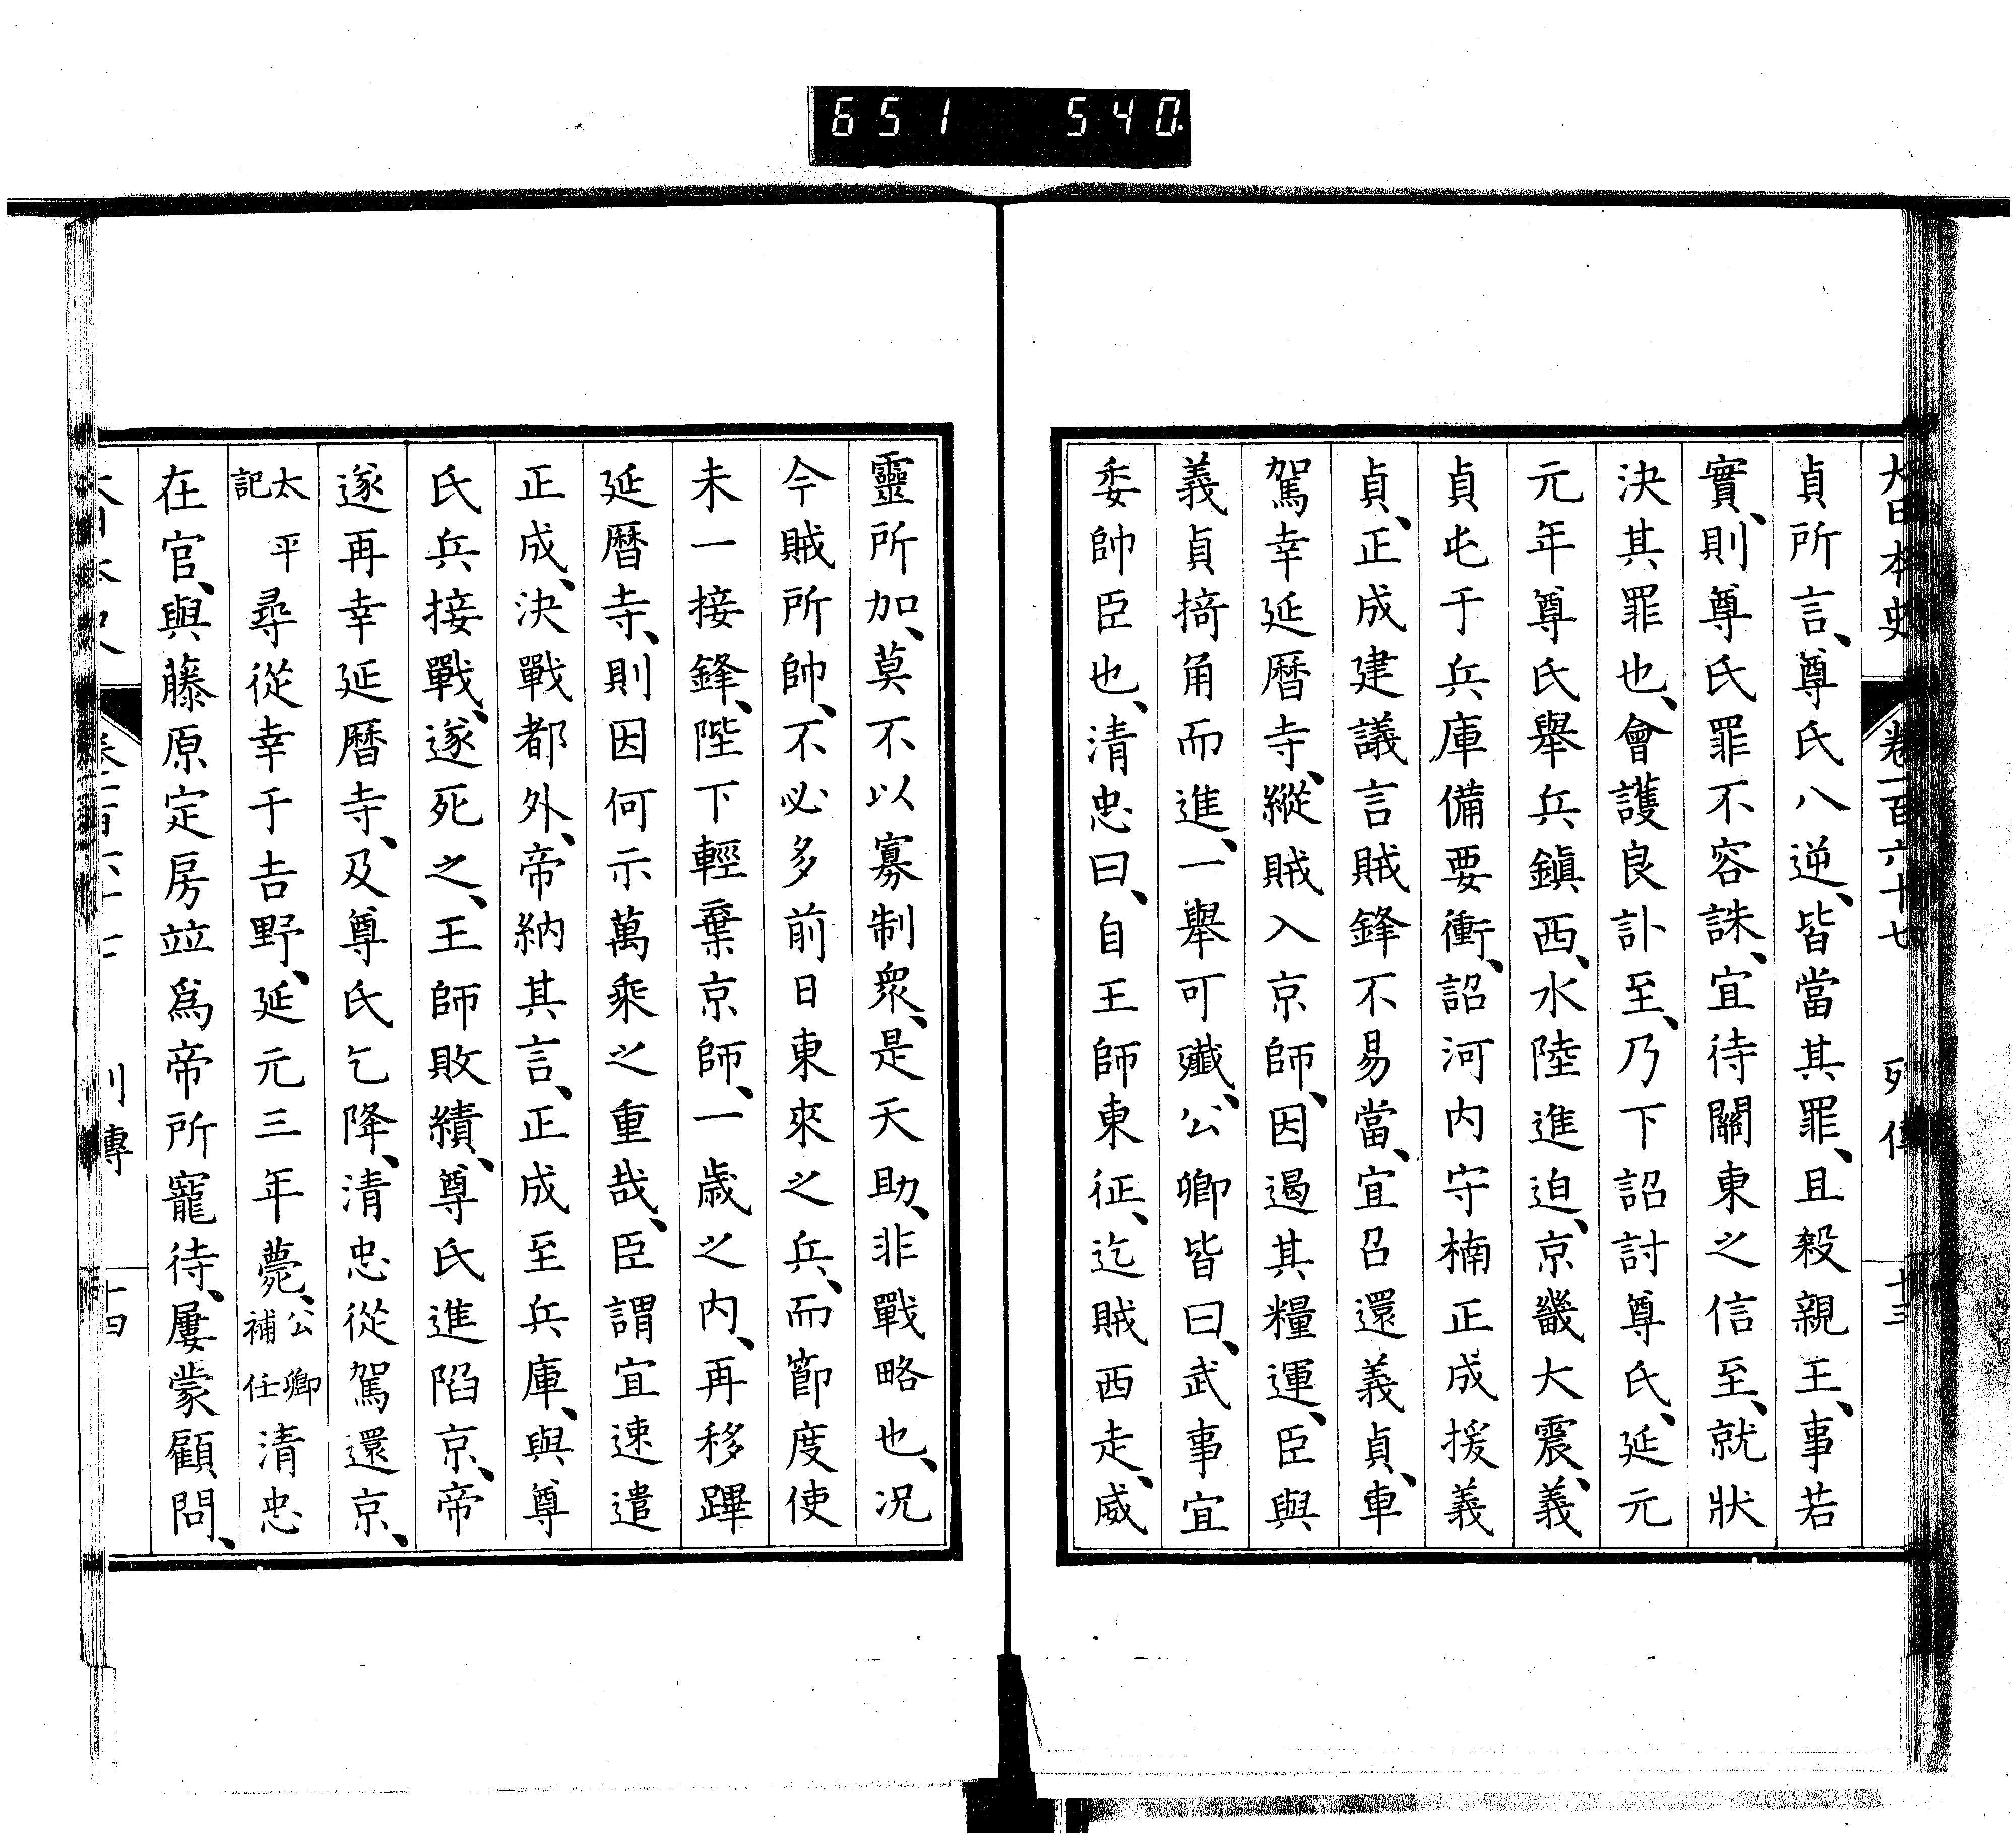 651 540
大日本史 卷一百六十七 列傳 十三
貞所言、尊氏八逆、皆當其罪、且殺親王、事若
實、則尊氏罪不容誅、宜待關東之信至、就狀
決其罪也、會護良訃至、乃下詔討尊氏、延元
元年尊氏舉兵鎭西、水陸進迫、京畿大震、義
貞屯于兵庫備要衝、詔河内守楠正成援義
貞、正成建議言賊鋒不易當、宜召還義貞、車
駕幸延曆寺、縱賊入京師、因遏其糧運、臣與
義貞掎角而進、一舉可殲、公卿皆曰、武事宜
委帥臣也、清忠曰、自王師東征、迄賊西走、威
靈所加、莫不以寡制衆、是天助、非戰略也、况
今賊所帥、不必多前日東來之兵、而節度使
未一接鋒、陛下輕棄京師、一歳之内、再移蹕
延曆寺、則因何示萬乘之重哉、臣謂宜速遣
正成、決戰都外、帝納其言、正成至兵庫、與尊
氏兵接戰、遂死之、王師敗績、尊氏進陷京、帝
遂再幸延曆寺、及尊氏乞降、清忠從駕還京、
太平記尋從幸于吉野、延元三年薨、公卿補任清忠
在官、與藤原定房竝爲帝所寵待、屢蒙顧問、
列傳 十四